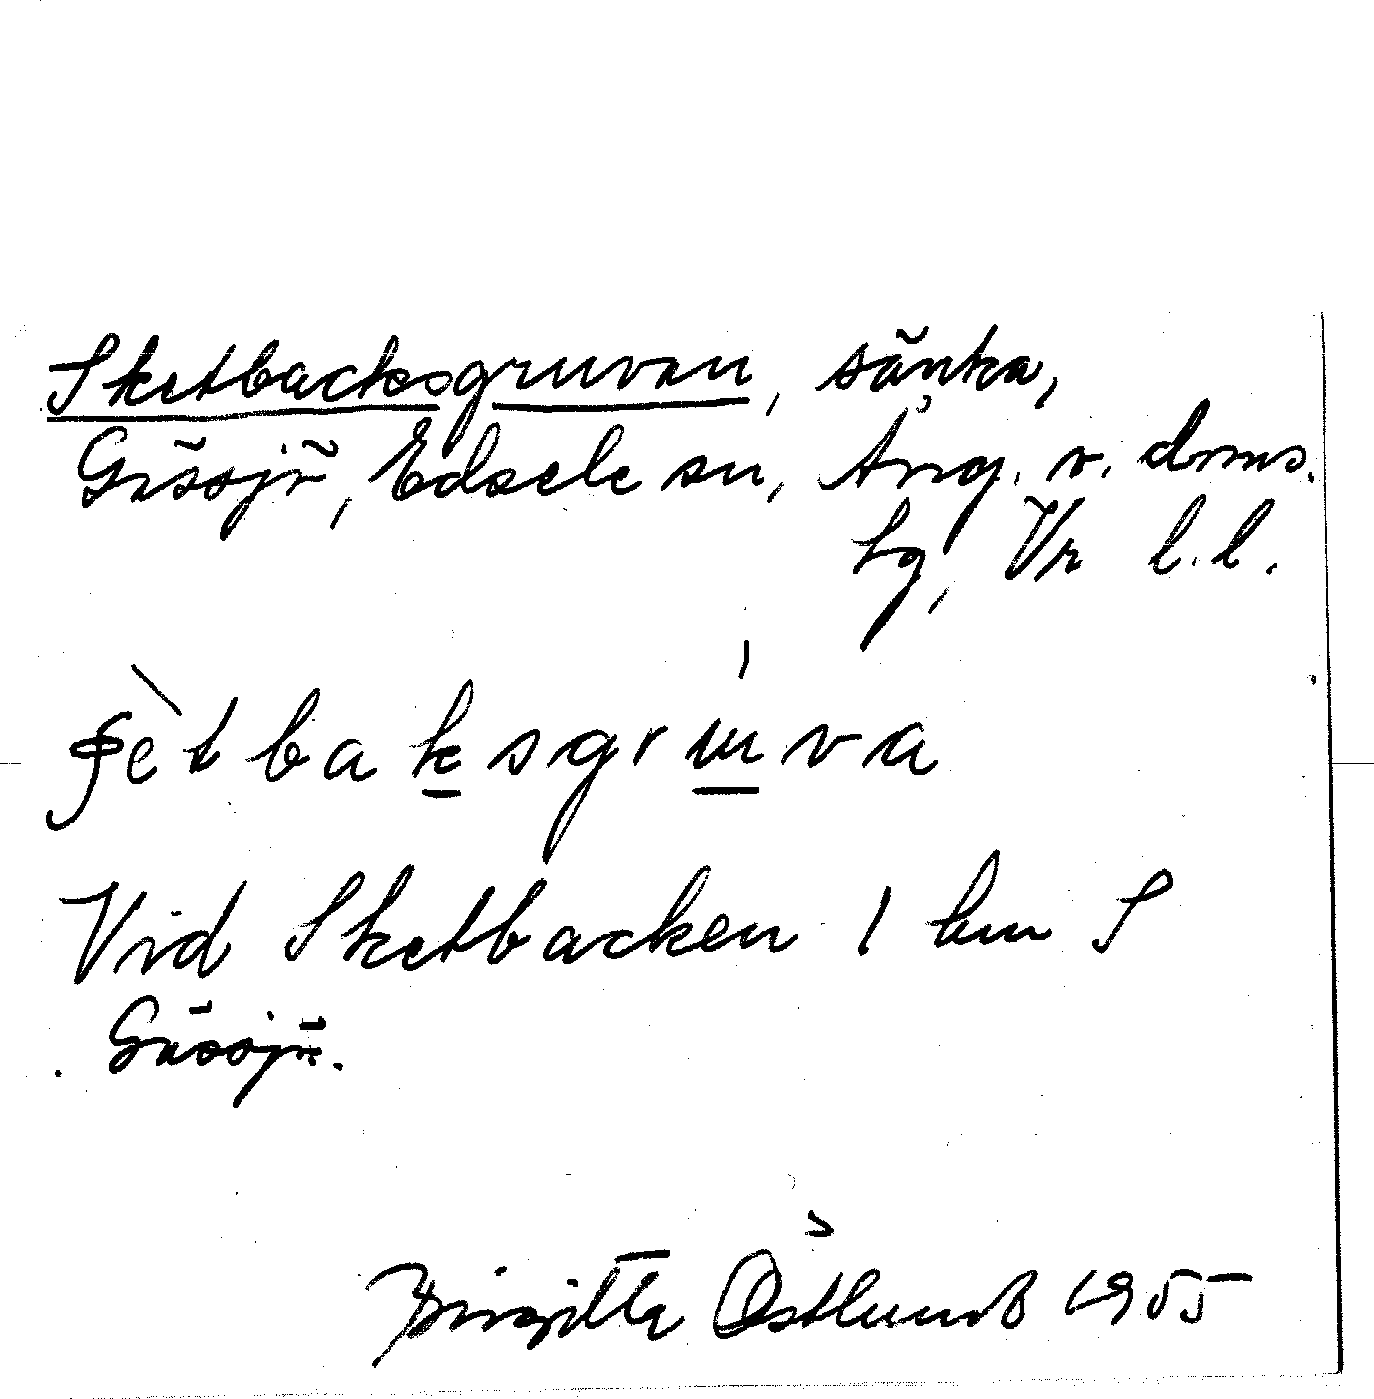 Sketbacksgruvan, sänka,
Gåssjö, Edsele sn, Ång. v. doms.
hg, Vr l.l.
Vid Sketbacken 1 km S
Gåssjö.
Birgitta Östlund 1955